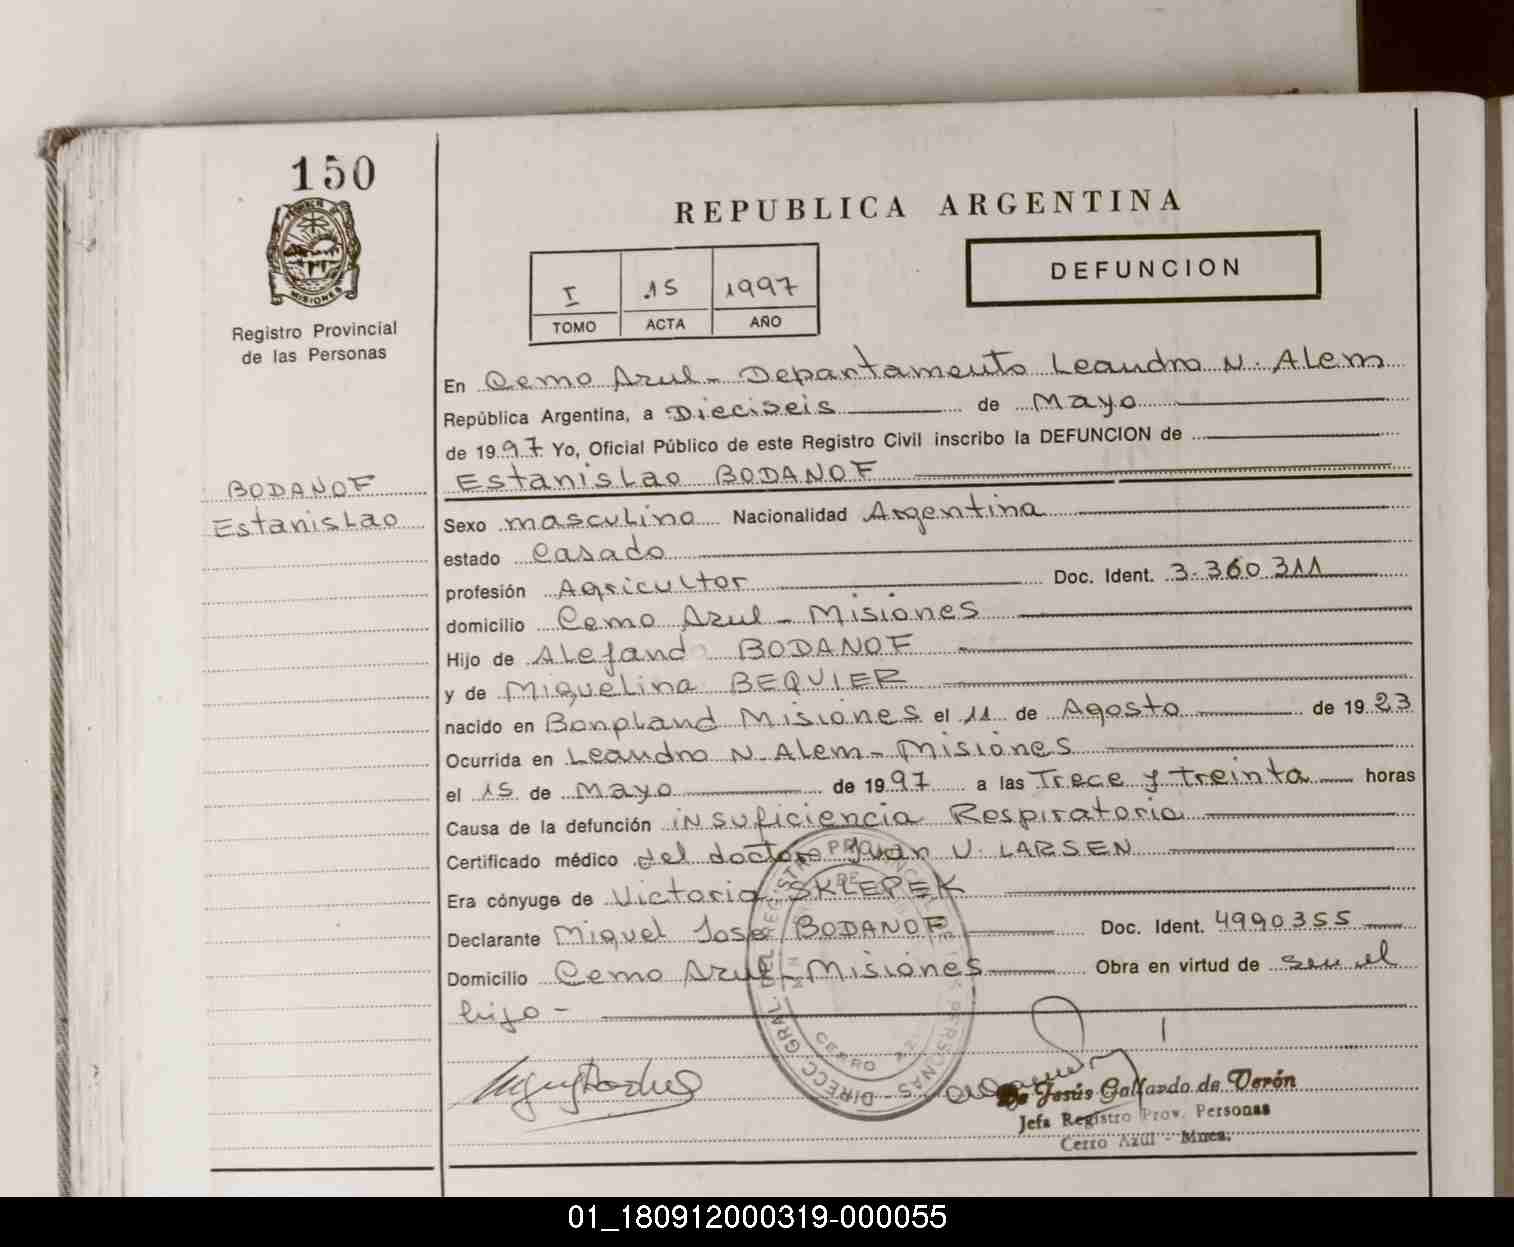 150
MISIONES
Registro Provincial
de las Personas
REPUBLICA ARGENTINA
I 15 1997
TOMO ACTA AÑO
DEFUNCION
En Cerro Azul - Departamento Leandro N. Alem
República Argentina, a Dieciseis de Mayo
de 1997 Yo, Oficial Público de este Registro Civil inscribo la DEFUNCION de
BODANOF
Estanislao
Estanislao BODANOF
Sexo masculino Nacionalidad Argentina
estado Casado
profesión Agricultor Doc. Ident. 3.360.311
domicilio Cerro Azul - Misiones
Hijo de Alejand BODANOF
y de Miguelina BEQUIER
nacido en Bonpland Misiones el 11 de Agosto de 1923
Ocurrida en Leandro N. Alem - Misiones
el 15 de Mayo de 1997 a las Trece y treinta horas
Causa de la defunción insuficiencia Respiratoria
Certificado médico del doctor Juan U. LARSEN
Era cónyuge de Victoria SKLEPEK
Declarante Miguel José BODANOF Doc. Ident. 4990355
Domicilio Cerro Azul - Misiones Obra en virtud de ser el
hijo -
DIRECC. GRAL. DEL REGISTRO PROVINCIAL DE LAS PERSONAS
CERRO AZUL
de Jesús Gallardo de Verón
Jefa Registro Prov. Personas
Cerro Azul - Mnes.
01_180912000319-000055